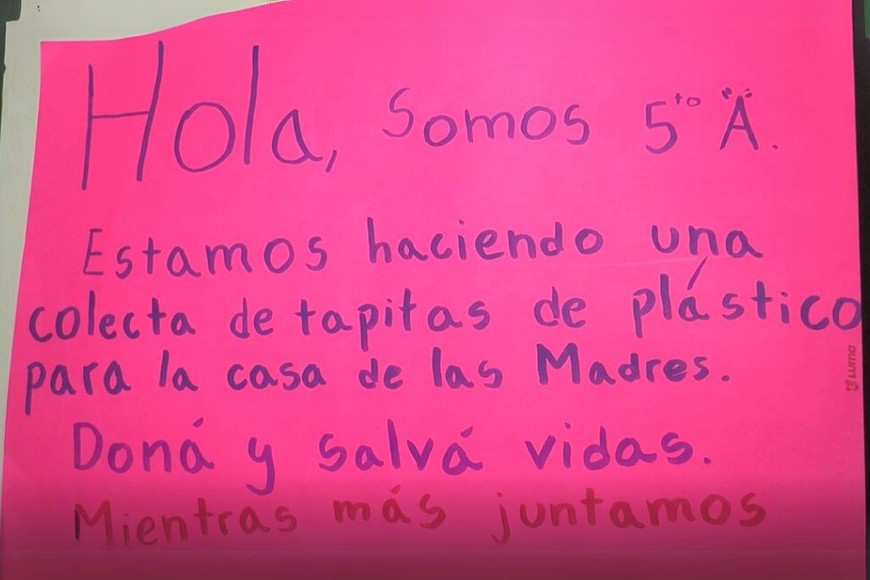 Hola, Somos 5to "A".
Estamos haciendo una
colecta de tapitas de plástico
para la casa de las Madres.
Doná y salvá vidas.
Mientras más juntamos
luma